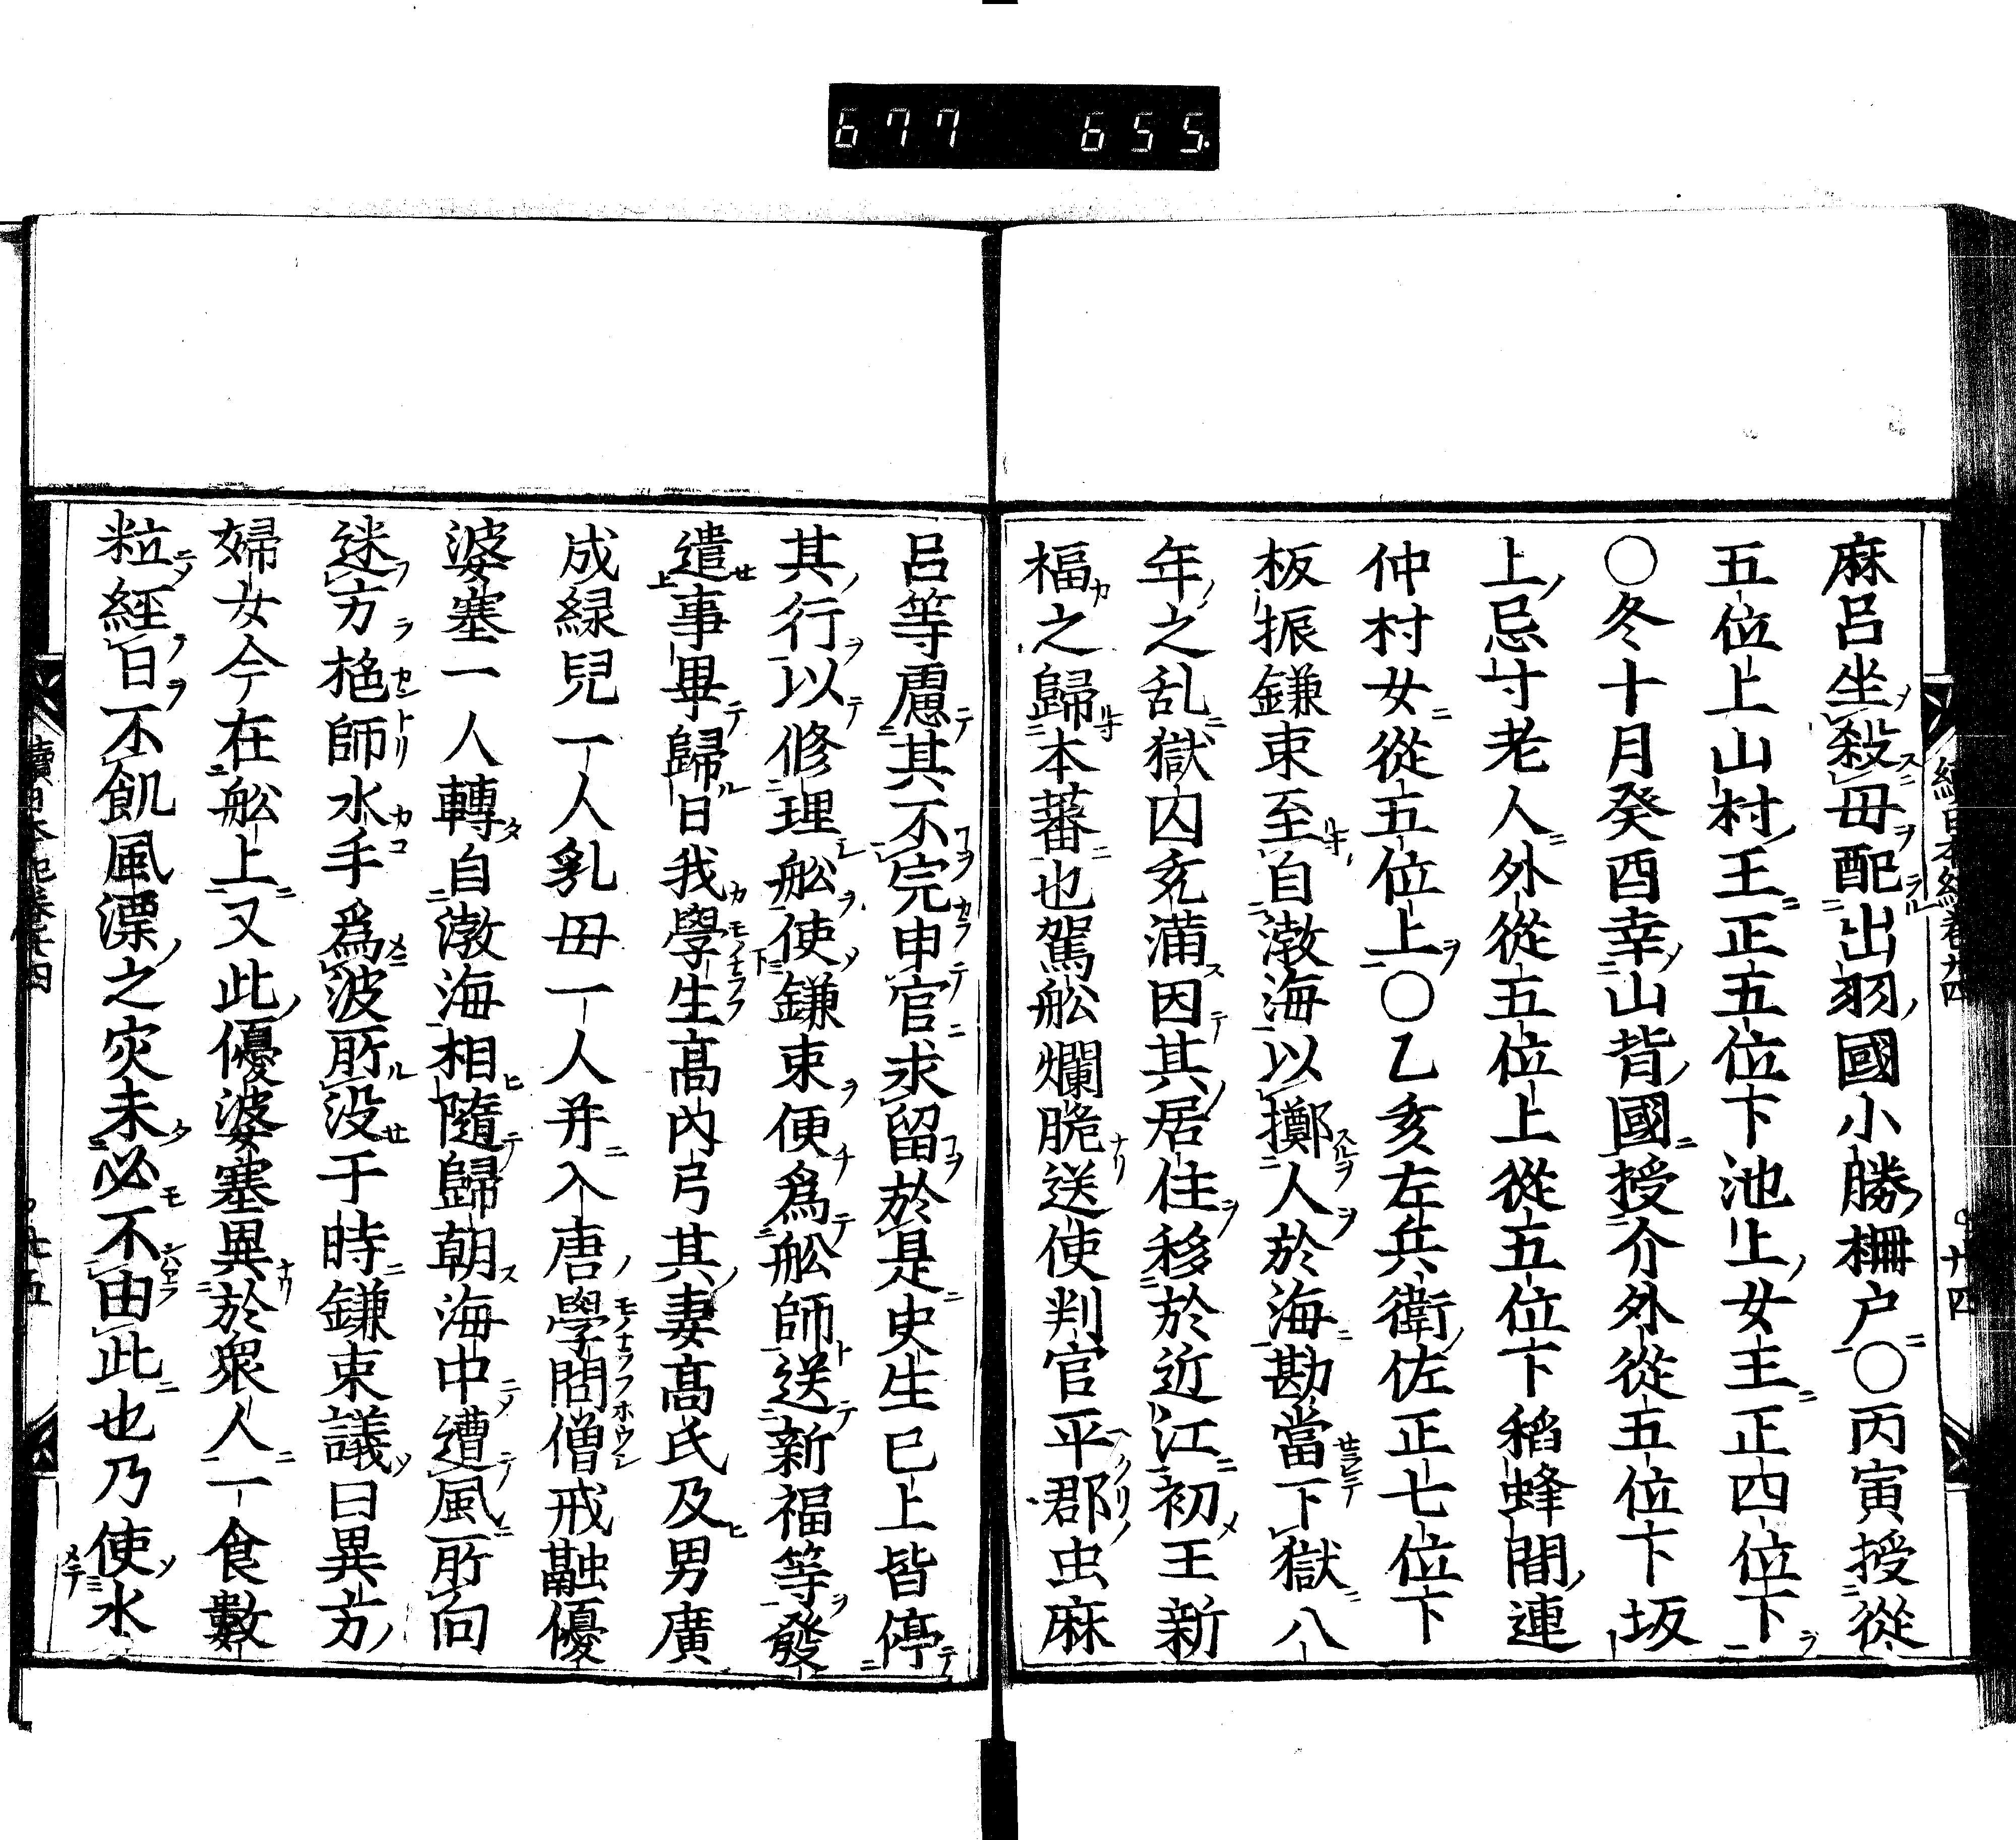 677 655
麻呂坐殺母配出羽國小勝柵户〇丙寅授從
五位上山村王正五位下池上女王正四位下
〇冬十月癸酉幸山背國授介外從五位下坂
上忌寸老人外從五位上從五位下稻蜂間連
仲村女從五位上〇乙亥左兵衛佐正七位下
板振鎌束至自渤海以擲人於海勘當下獄八
年之乱獄囚充満因其居住移於近江初王新
福之歸本蕃也駕舩爛脆送使判官平群虫麻
呂等慮其不完申官求留於是史生已上皆停
其行以修理舩使鎌束便爲舩師送新福等發
遣事畢歸日我學生髙内弓其妻髙氏及男廣
成緑兒一人乳母一人并入唐學問僧戒融優
婆塞一人轉自渤海相隨歸朝海中遭風所向
迷方柂師水手爲波所没于時鎌束議曰異方
婦女今在舩上又此優婆塞異於衆人一食數
粒經日不飢風漂之灾未必不由此也乃使水